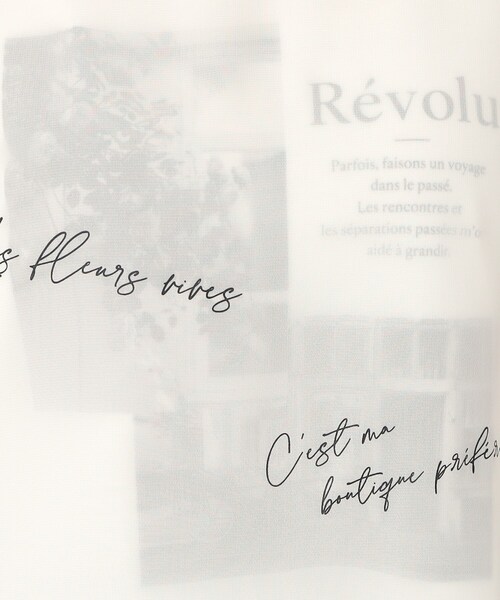 Révolu
Parfois, faisons un voyage
dans le passé.
Les rencontres et
les séparations passées m'o
aidé à grandir.
s fleurs vives
C'est ma
boutique préfér